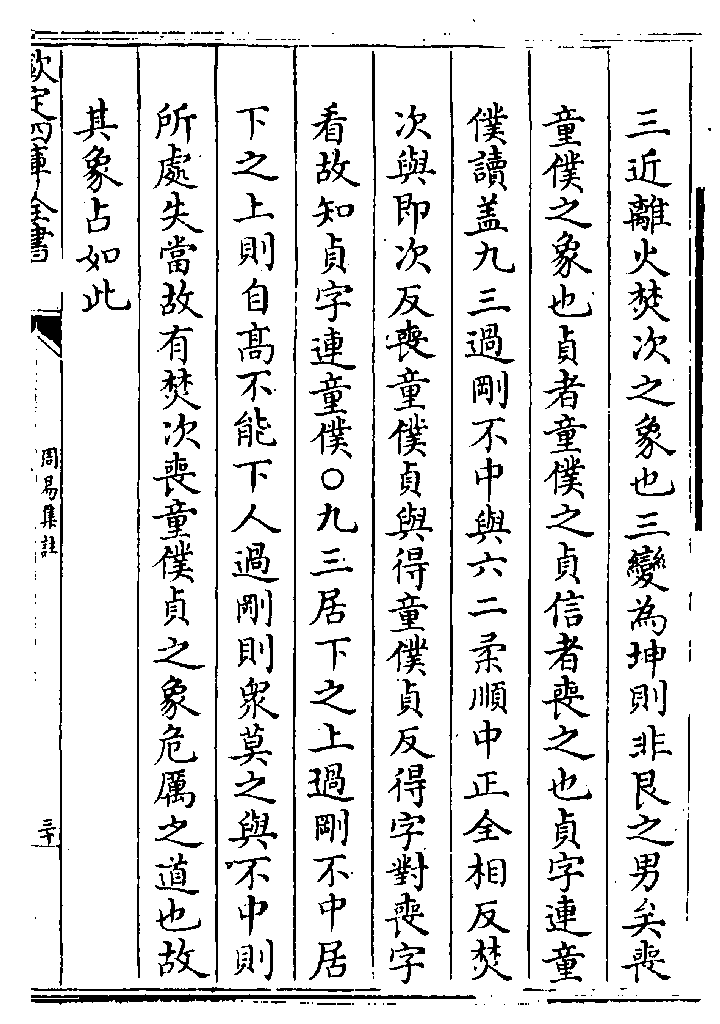 三近離火焚次之象也三變為坤則非艮之男矣喪
童僕之象也貞者童僕之貞信者喪之也貞字連童
僕讀盖九三過剛不中與六二柔順中正全相反焚
次與即次反喪童僕貞與得童僕貞反得字對喪字
看故知貞字連童僕○九三居下之上過剛不中居
下之上則自髙不能下人過剛則衆莫之與不中則
所處失當故有焚次喪童僕貞之象危厲之道也故
其象占如此
欽定四庫全書
周易集註
三十